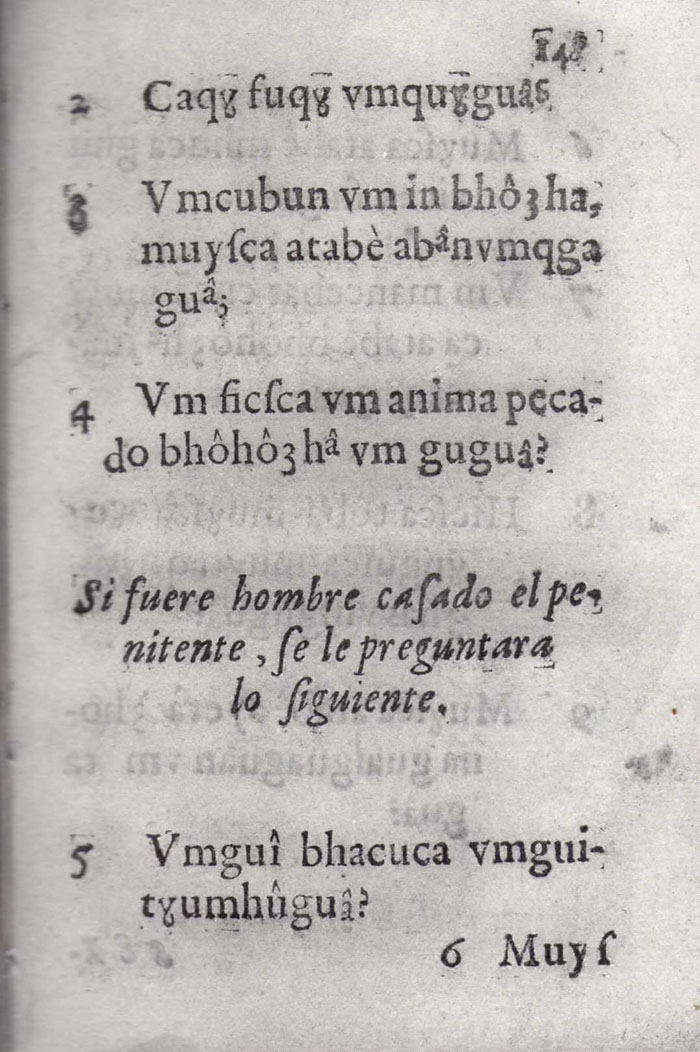 148
2 Caqɣ̄ fuqɣ̄ vmquɣ̄guâ?
3 Vmcubun vm in bhôʒha,
muyſca atabè abânvmqga
guâ?
4 Vm ficſca vm anima peca-
do bhôhôʒhâ vm guguâ?
Si fuere hombre caſado el pe-
nitente, ſe le preguntara
lo ſiguiente.
5 Vmguî bhacuca vmgui-
tɣumhûguâ?
6 Muyſ